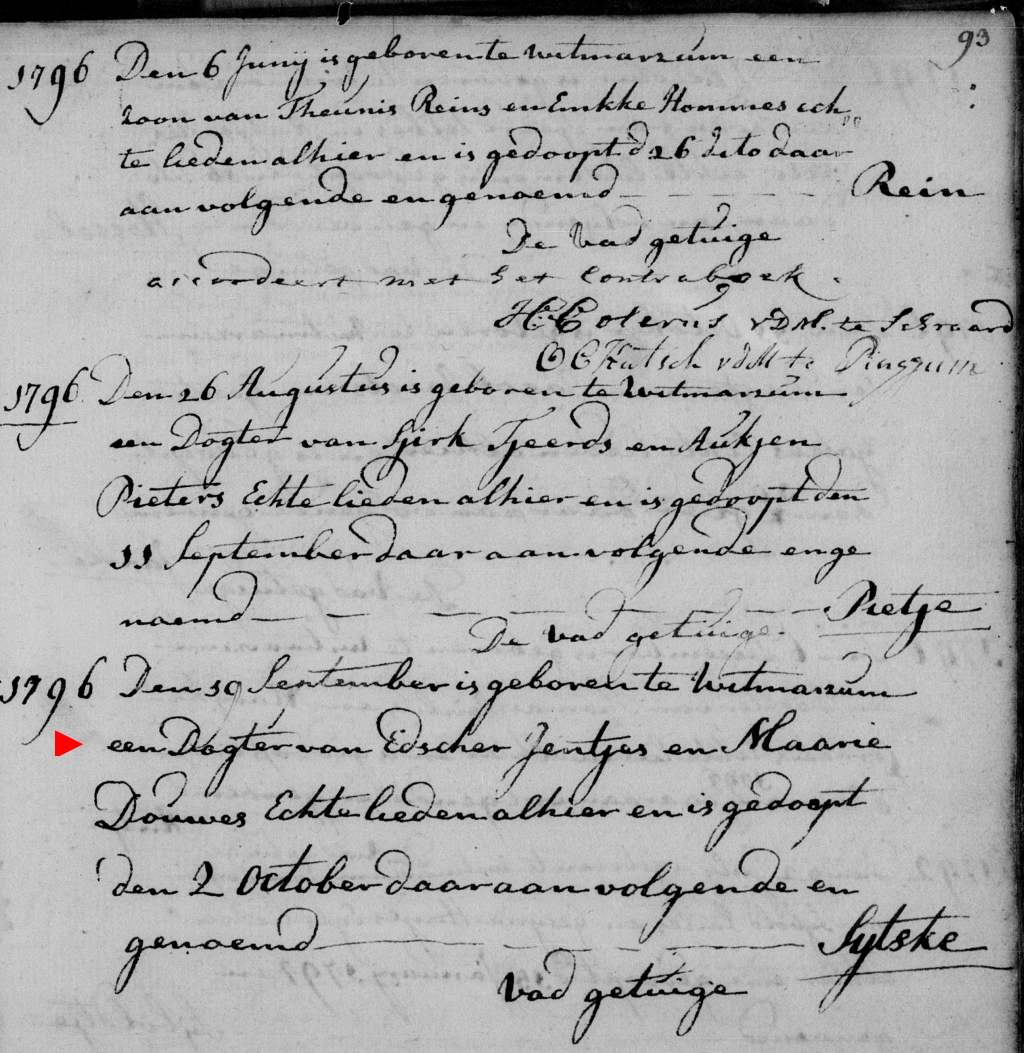 93
1796 Den 6 Junij is geboren te Witmarzum een
zoon van Theunis Reins en Emkke Hommes ech
te lieden alhier en is gedoopt d 26 dito daar
aan volgende en genoemd Rein
De Vad getuige
accordeert met het Contraboek.
H: Coterus v.D.M. te Schraard
vdM te Pingjum
1796 Den 26 Augustus is geboren te Witmarzum
een Dogter van Sjirk Tjeerds en Aukjen
Pieters Echte lieden alhier en is gedoopt den
11 September daar aan volgende en ge
naemd Pietje
De Vad getuige.
1796 Den 19 September is geboren te Witmarzum
een Dogter van Edscher Jentjes en Maarie
Douwes Echte lieden alhier en is gedoopt
den 2 October daar aan volgende en
genoemd Sytske
Vad getuige